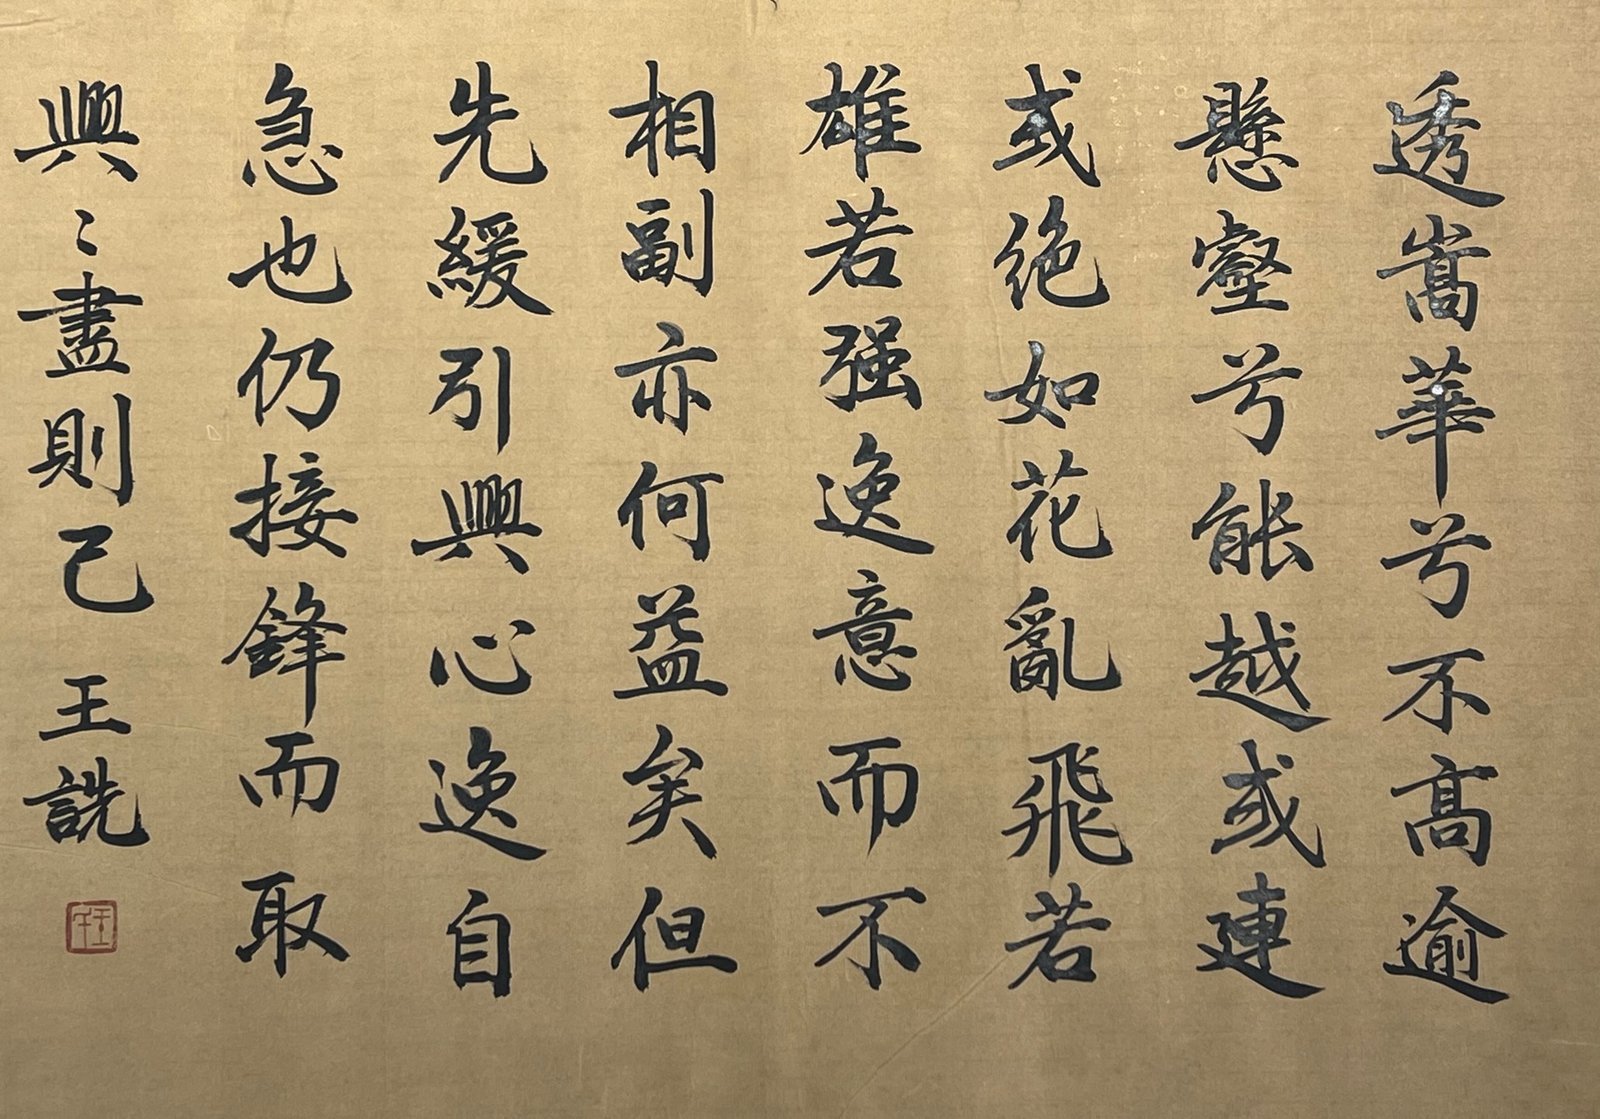 透嵩華兮不高逾
懸壑兮能越或連
或绝如花亂飛若
雄若强逸意而不
相副亦何益矣但
先緩引興心逸自
急也仍接鋒而取
興〻盡則已 王詵